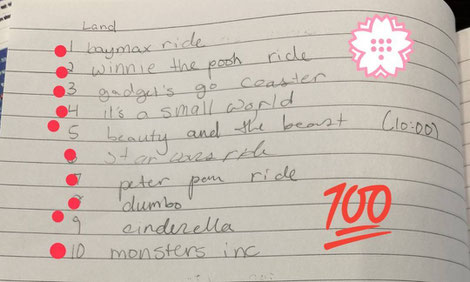 Land
1 baymax ride
2 winnie the pooh ride
3 gadget's go coaster
4 it's a small world
5 beauty and the beast (10:00)
star wars ride
7 peter pan ride
dumbo
9 cinderella
10 monsters inc
100